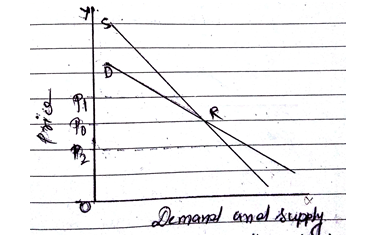 Y
S
D
P1
P0
P2
R
Price
O
X
Demand and supply